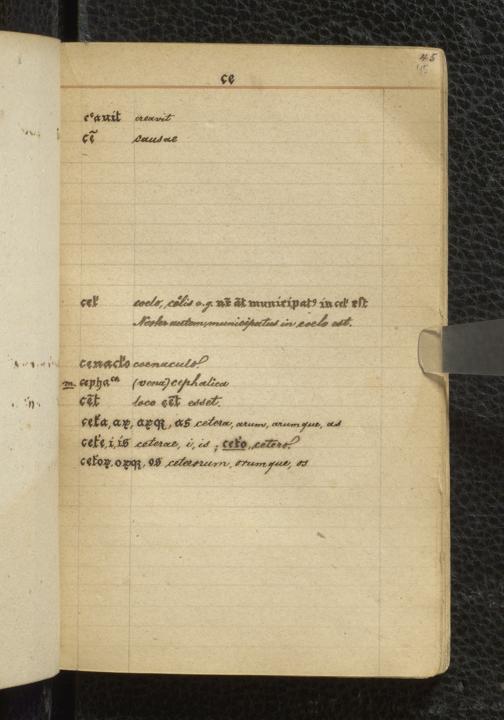 45
ce
cᵉauit creavit
cē causae
cel̄ coelo, coelis e.g. nr̄ āt municipatꝰ in cel̄ est
Noster autem municipatus in coelo est.
cenacl̄o coenaculo
m. cephaᶜᵃ (vena) cephalica
cēt loco eēt esset.
cet̄a, aꝝ, aꝝqꝫ, as cetera, arum, arumque, as
cet̄e, i, is ceterae, i, is; cet̄o, cetero.
cet̄oꝝ, oꝝqꝫ, os ceterorum, orumque, os